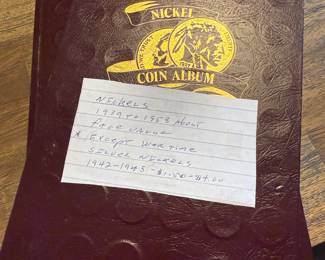 NICKEL
COIN ALBUM
NICKELS
1939 TO 1958 About
FACE VALUE
* EXCEPT WAR TIME
SILVER NICKELS
1942-1945 - $1.50 - $4.00